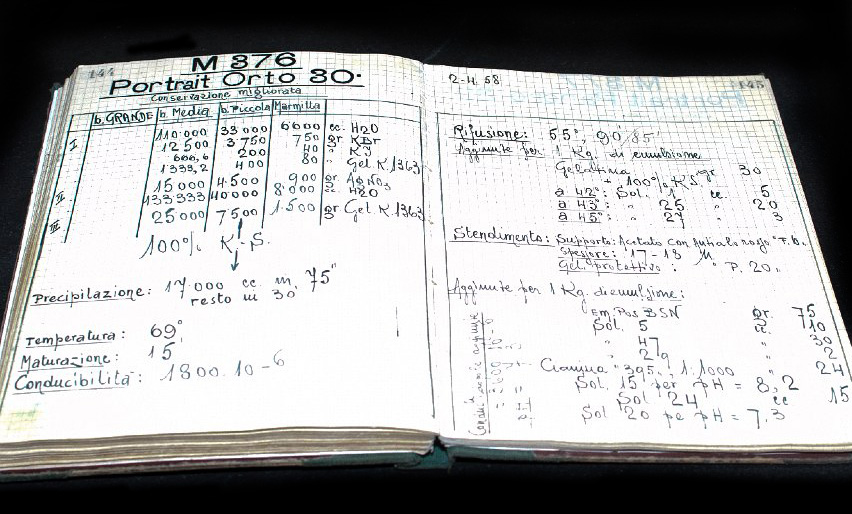 144
M 376
Portrait Orto 30.
Conservazione migliorata
b. GRANDE b. Media b. Piccola Marmilla
I 110.000 33 000 6600 cc. H2O
12 500 3 750 750 gr KBr
666,6 200 40 " KJ
1333,2 400 80 " Gel K.1363
II 15 000 4.500 900 gr. AgNO3
133333 40000 8.000 " H2O
III 25 000 7500 1.500 gr Gel. K 1363
100% K.S.
Precipitazione: 17.000 cc in 75"
resto in 30"
Temperatura: 69°
Maturazione: 15'
Conducibilità: 1800.10-6
2-4.58
145
Rifusione: 55° 90/85'
Aggiunte per 1 Kg. di emulsione
Gelatina gr 30
100% K.S.
a 42°: Sol. cc. 5
a 45°: " 25 " 20
a 45°: " 27 " 3
Stendimento: Supporto: Acetato con Antialo rosso "F.B.
Spessore: 17-18 M
Gel. protettivo: " P. 20.
Aggiunte per 1 Kg. di emulsione:
Em. Pos. BSN gr. 75
Sol. 5 cc. 10
" 47 " 30
" 27g " 2
Cianina "395" 1:1000 " 24
Sol. 15 per pH = 8,2
Sol 24 cc 15
Sol 20 pe pH = 7.3